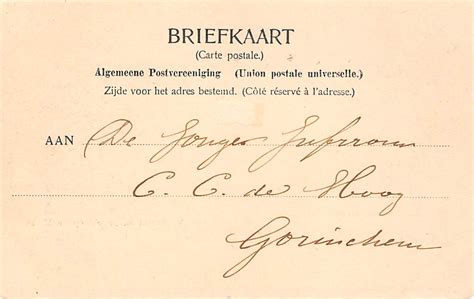 BRIEFKAART
(Carte postale.)
Algemeene Postvereeniging (Union postale universelle.)
Zijde voor het adres bestemd. (Côté réservé à l'adresse.)
AAN De Jonge Jufvrouw
C. C. de Hoog
Gorinchem